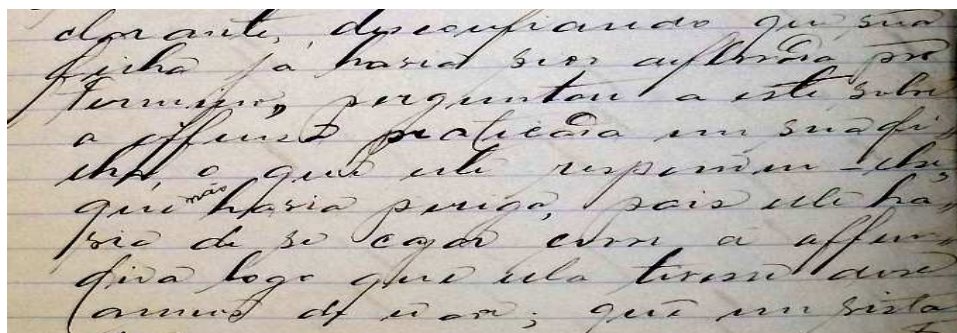 clarante, desconfiando que sua
filha ja havia sido offendida por
Firmino, perguntou a este sobre
a offensa praticada em sua fi-
lha, o que este respondeu-lhe,
que não havia perigo, pois elle ha-
via de se casar com a offen-
dida logo que ella tivesse doze
annos de idade; que em vista